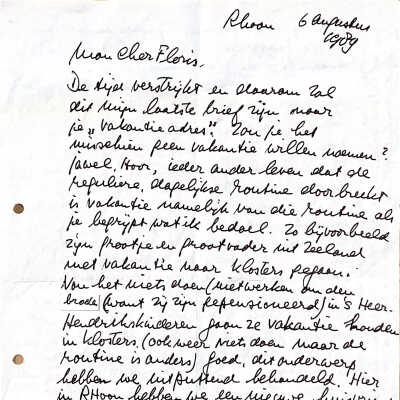 Rhoon 6 augustus
1989
Mon Cher Floris,
De tijd verstrijkt en daarom zal
dit mijn laatste brief zijn naar
je „vakantie adres". Zou je het
misschien geen vakantie willen noemen?
jawel, hoor, ieder ander leven dat de
reguliere, dagelijkse routine doorbreekt
is vakantie namelijk van die routine als
je begrijpt wat ik bedoel. Zo bijvoorbeeld
zijn grootje en grootvader uit Zeeland
met vakantie naar Klosters gegaan.
Van het niets doen (niet werken om den
brode) (want zij zijn gepensioneerd) in 's Heer-
Hendrikskinderen gaan ze vakantie houden
in Klosters. (ook weer niets doen maar de
routine is anders) goed, dit onderwerp
hebben we uitputtend behandeld. Hier
in Rhoon hebben we een nieuwe